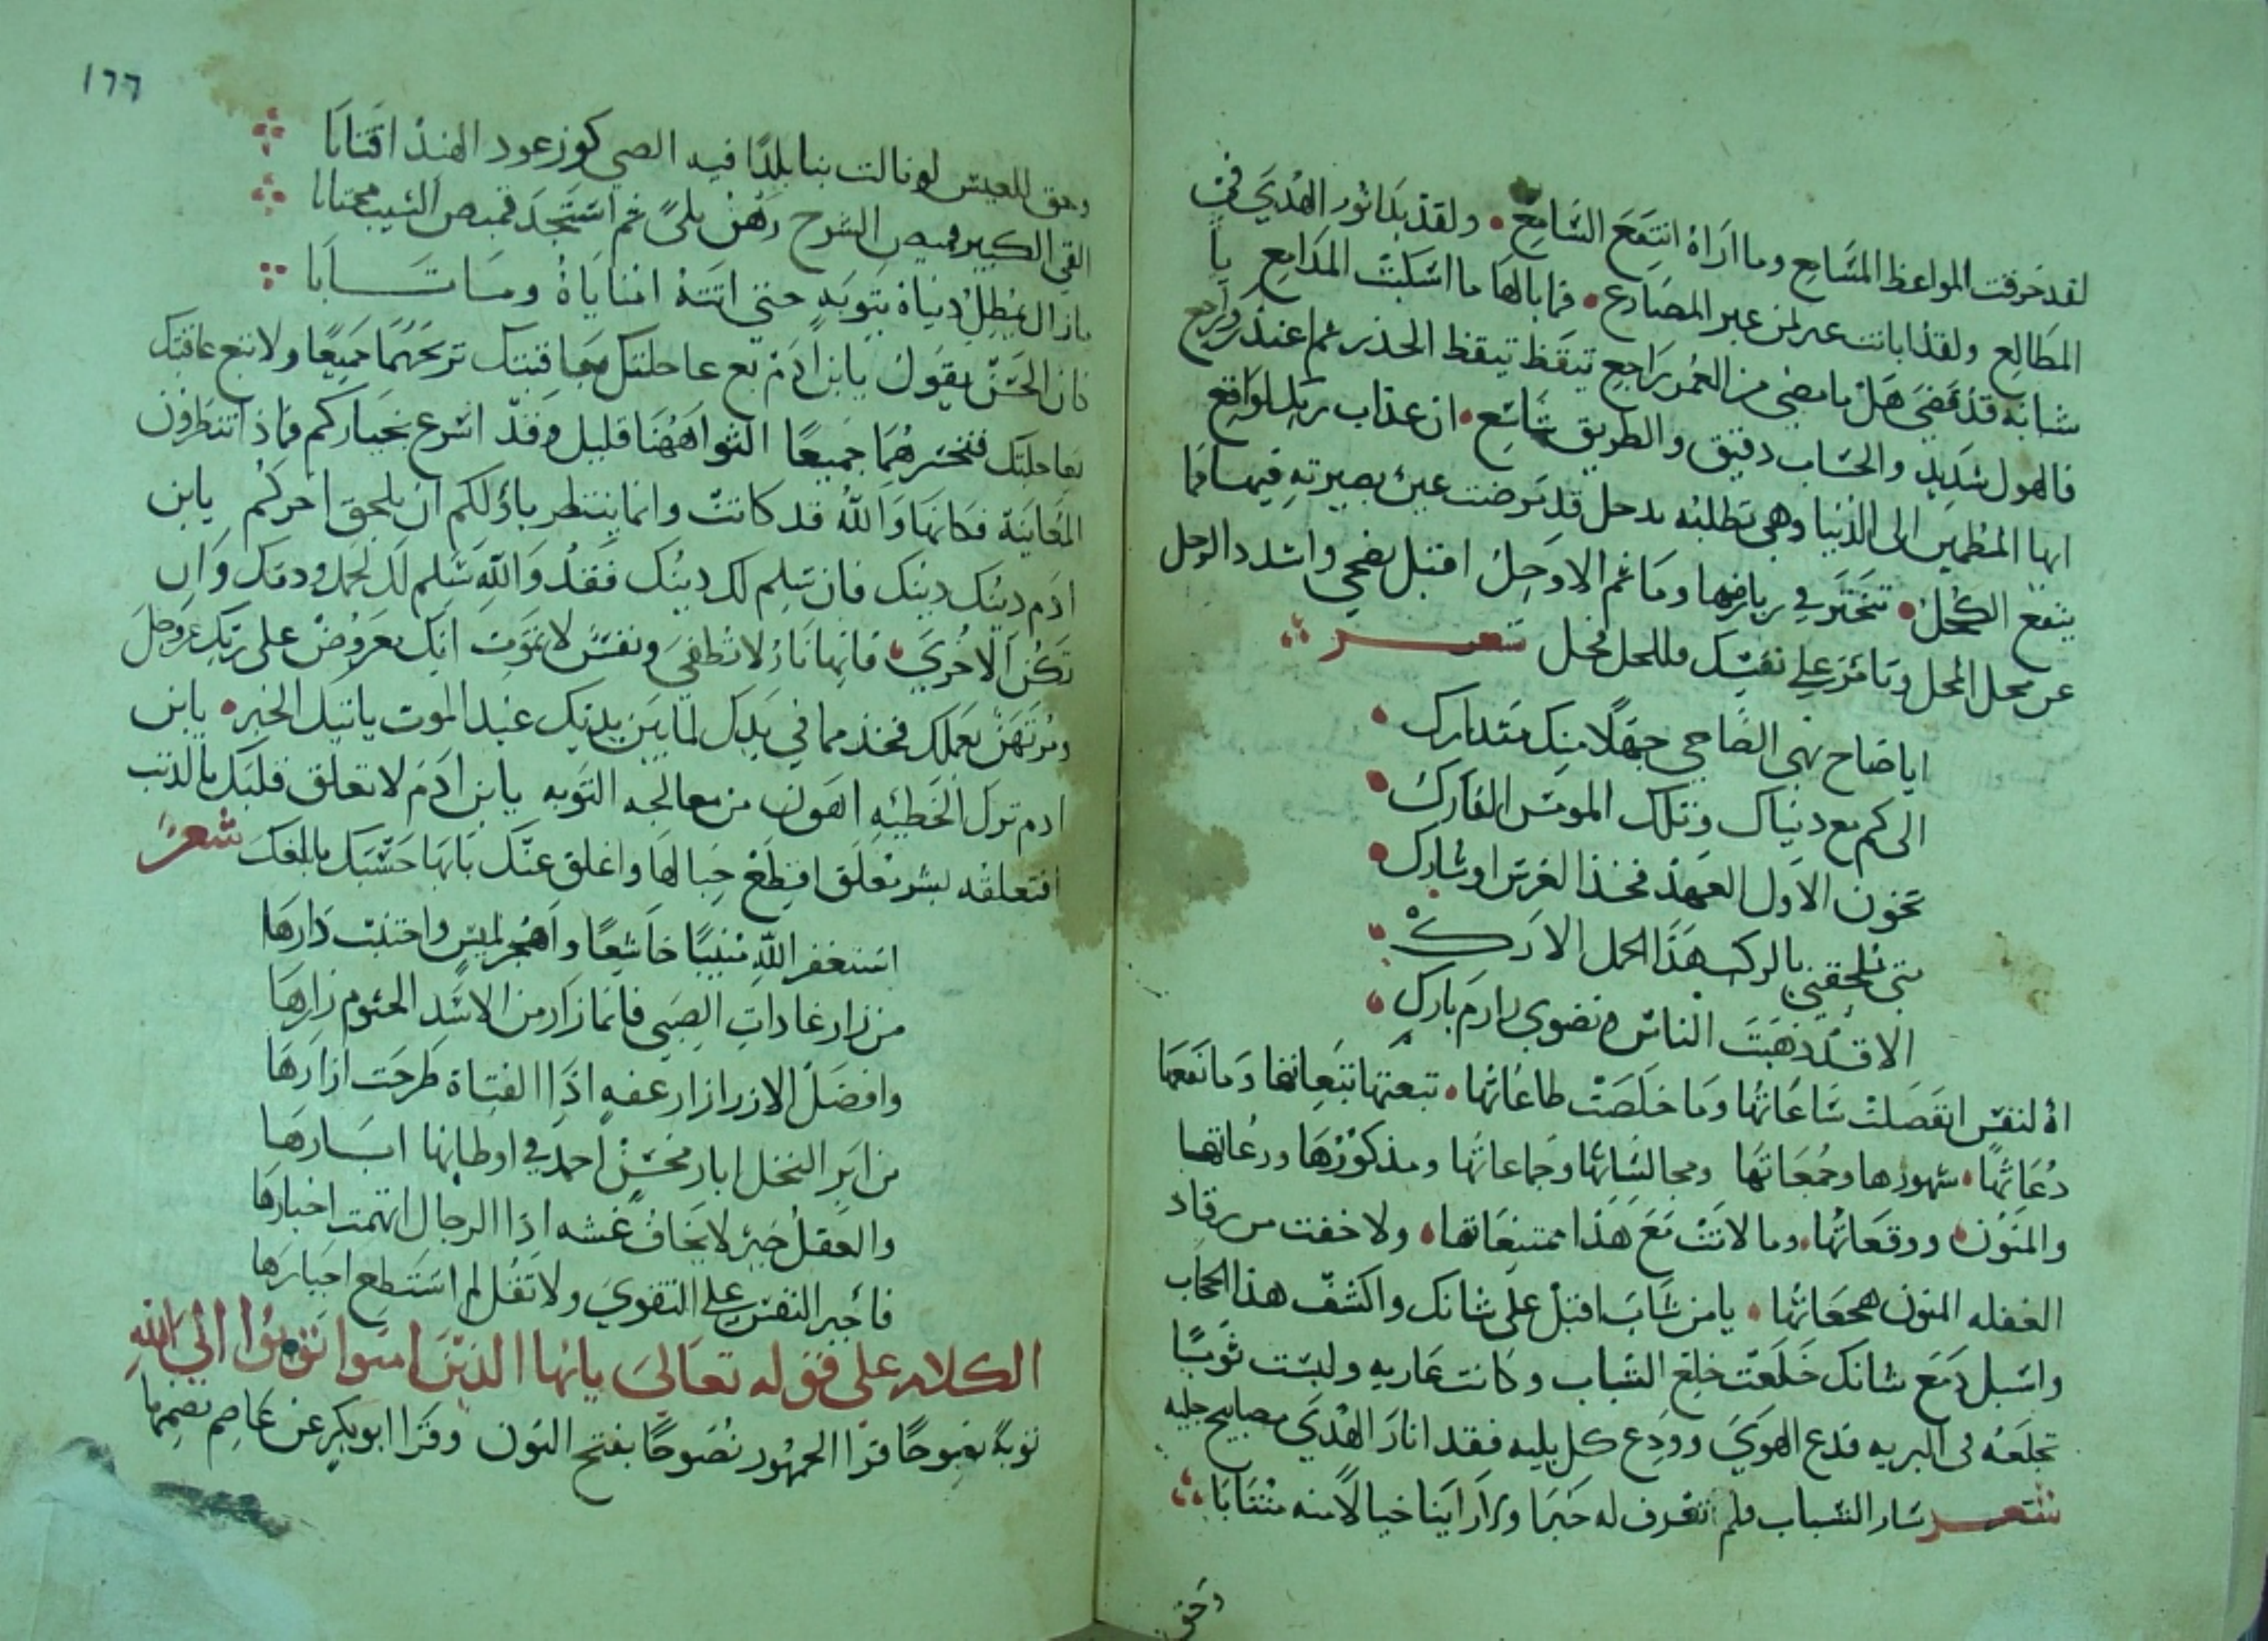 لقد خرقت المواعظ المسامع وما اراه انتفع السامع ولقد بدا نور الهدي في
المطالع ولقد ابانت عبر لمن عبر المصارع فما بالها ما اسكبت المدامع يا
شابه قد مضي هل ما مضي من العمر براجع تيقظ تيقظ الحذر ثم اعتذر وراجع
فالهول شديد والحساب دقيق والطريق شاسع ان عذاب ربك لواقع
ايها المطمين الى الدنيا وهي تطلبه بدحل قد مرضت عين بصيرته فيها فما
ينفع الكحل تتبختر في رياضها وما ثم الا وحل اقبل نصحي واشدد الرحل
عن محل المحل وتامر علي نفسك فللحل فحل شعر
ايا صاح نهي الصاحي جهلا منك متدارك
الى كم مع دنياك وتلك المومس الفارك
تخون الاول العهد فخذ الغرس او شارك
متى تلحقني بالركب هذا الجمل الارك
الا قد ذهبت الناس ونضوي رازم بارك
اه لنفس انفصلت ساعاتها وما خلصت طاعاتها تبعتها تبعاتها وما نفعها
دعاتها شهورها وجمعاتها ومجالسايها وجماعاتها ومذكورها ورعاتها
والمنون ووقعاتها وما لانت مع هذا ممتنعاتها ولا خفت من رقاد
الغفله المنون هجعاتها يا من شاب اقبل على شانك واكشف هذا الحجاب
واسبل دمع شانك خلعت خلع الشباب وكانت عاريه ولبست ثوبا
تخلعه لى البريه فدع الهوي وودع كل بليه فقد انار الهدي مصابيح جليه
شعر سار الشباب فلم نعرف له خبرا ورا راينا خيالا منه منتابا
وحق
١٦٦
وحق للعيش لو نالت بنا بلدا فيه الصبي كوز عود الهند اقتابا
القي الكبير قميص الشرخ رهن بلى ثم استجد قميص الشيب مجتابا
ما زال يمطل دنياه بتوبه حتى اتته امناياه وما تابا
كان الحسن يقول يا بن ادم بع عاجلتك بعاقبتك تربحهما جميعا ولا تبع عاقبتك
بعاجلتك فتخسرهما جميعا الثوا ههنا قليل وقد اسرع بخياركم فماذا تنتظرون
المعاينة فكانها والله قد كانت وانما ينتظر باولكم ان يلحق اخركم يا بن
ادم دينك دينك فان تسلم لك دينك فقد والله سلم لك لحمك ودمك وان
تكن الاخري فانها نار لا تطفي ونفس لا تموت انك معروض على ربك عز وجل
ومرتهن بعملك فخذ مما في يدك لما بين يديك عند الموت ياتيك الخبر يا بن
ادم ترك الخطيه اهون من معالجه التوبه يا بن ادم لا تعلق قلبك بالدنيا
فتعلقه بشر تعلق اقطع حبالها واغلق عنك بابها حسبك ما بلغك شعر
استغفر الله منيبا خاشعا واهجر لميس واجتنب دارها
من زار غادات الصبي فانما زار من الاسد الحثوم زارها
وافضل الازر ازار عفه اذا الفتاة طرحت ازارها
من ابر النخل ابار محسن احمد في اوطانها ابارها
والعقل خير لا يخاف غشه اذا الرجال اتهمت اخبارها
فاجبر النفس علي التقوي ولا تقل لم استطع اجبارها
الكلام على قوله تعالي يايها الذين امنوا توبوا الي الله
توبة نصوحا قرا الجمهور نصوحا بفتح النون وقرا ابو بكر عن عاصم بضمها